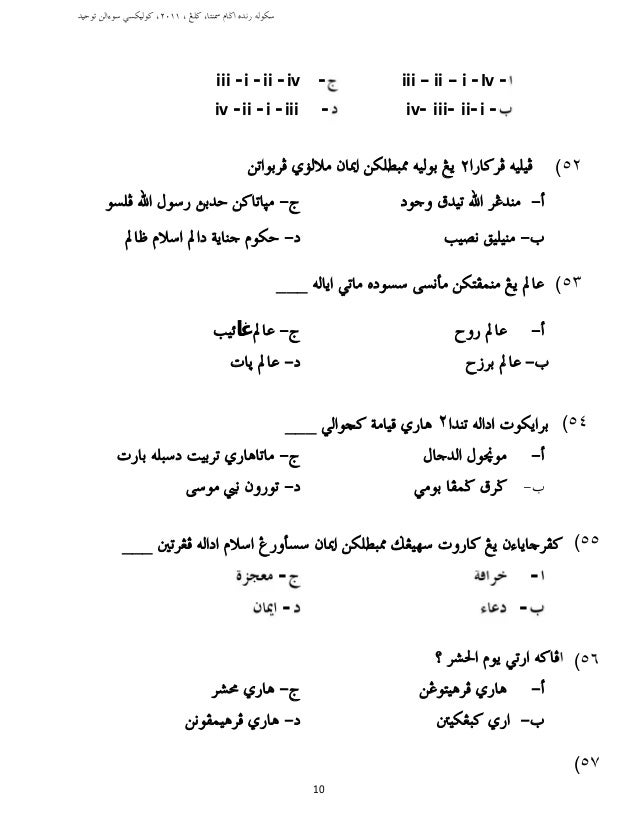 سكوله رنده اݢام سمنتا، كلڠ ، ٢٠١١، كوليكسي سوءالن توحيد
ا - iii – ii – i - Iv ج - iii - i - ii - iv
ب - iv- iii- ii- i د - iv -ii - i -iii
٥٢) ڤيليه ڤركارا٢ يڠ بوليه ممبطلكن ايمان ملالوٴي ڤربواتن
أ– مندڠر الله تيدق وجود ج– مڽاتاكن حديث رسول الله ڤلسو
ب– منيليق نصيب د– حكوم جناية دالم اسلام ظالم
٥٣) عالم يڠ منمڤتكن مأنسى سسوده ماتي اياله ____
أ– عالم روح ج– عالم غائيب
ب– عالم برزخ د– عالم ڽات
٥٤) برايكوت اداله تندا٢ هاري قيامة كجوالي ____
أ– مونچول الدجال ج– ماتاهاري تربيت دسبله بارت
ب- كرق ݢمڤا بومي د– تورون نبي موسى
٥٥) كڤرچاياءن يڠ كاروت سهيڠݢ ممبطلكن ايمان سسأورڠ اسلام اداله ڤڠرتين ____
ا- خرافة ج- معجزة
ب- دعاء د- ايمان
٥٦) اڤاكه ارتي يوم الحشر ؟
أ– هاري ڤرهيتوڠن ج– هاري محشر
ب– اري كبڠكيتن د– هاري ڤرهيمڤونن
٥٧)
10